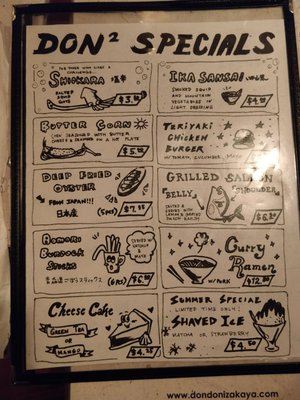 DON² SPECIALS
FOR THOSE WHO LIKES A
CHALLENGE.
SHIOKARA 塩辛
SALTED
SQUID
GUTS
$3.
IKA SANSAI
SMOKED SQUID
AND MOUNTAIN
VEGETABLES IN
LIGHT DRESSING
$4.
BUTTER CORN
CORN SEASONED WITH BUTTER
CHEESE & CRANKED ON A HOT PLATE
$5.
TERIYAKI
CHICKEN
BURGER
W/TOMATO, CUCUMBER, MAYO
DEEP FRIED
OYSTER
FROM JAPAN!!!
日本産
(5pcs)
$7.75
GRILLED SALMON
BELLY
SHOULDER
$6.50
AOMORI
BURDOCK
STICKS
SERVED W/
KETCHUP &
MAYO
青森県ごぼうスティックス
(6pcs)
$6.00
CURRY
RAMEN
W/PORK
$12.00
CHEESE CAKE
GREEN TEA
OR
MANGO
$4.25
SUMMER SPECIAL
LIMITED TIME ONLY!
SHAVED ICE
MATCHA OR STRAWBERRY
$4.50
www.dondonizakaya.com